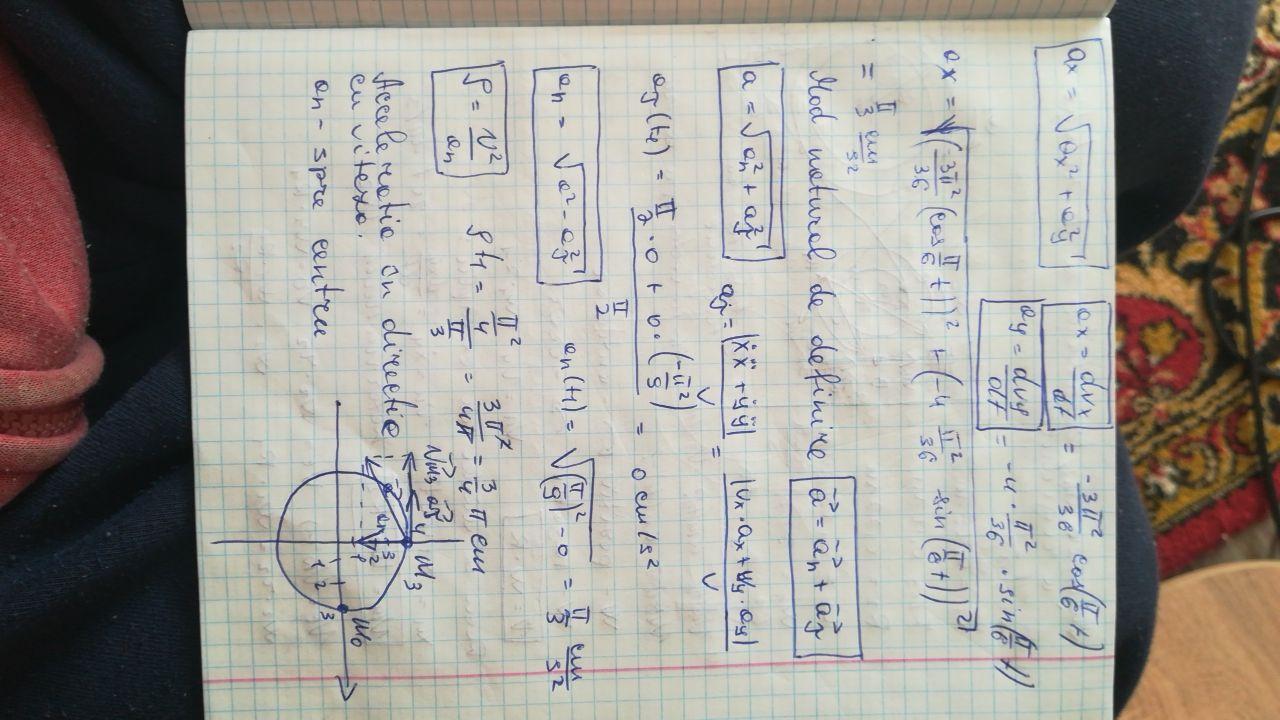 ax = √(ax² + ay²)   ax = dvx/dt = -3π²/36 cos(π/6 t)
ay = dvy/dt = -4·π²/36·sin(π/6 t)
ax = √((3π²/36 (cos π/6 t))² + (-4 π²/36 sin(π/6 t))²)
= π/3 cm/s²
Mod natural de definire   a⃗ = a⃗n + a⃗τ
a = √(an² + aτ²)   aτ = |ẋẍ + ẏÿ|/v = |vx·ax + vy·ay|/v
aτ(t1) = (π/2·0 + 0·(-π²/9))/(π/2) = 0 cm/s²
an = √(a² - aτ²)   an(t1) = √((π/9)² - 0) = π/3 cm/s²
ρ = v²/an   ρt1 = (π²/4)/(π/3) = 3π²/4π = 3/4 π cm
Acceleratia cn directie
cu viteza.
an - spre centru
M3
4
3
2
1
an
1 2 3
M0